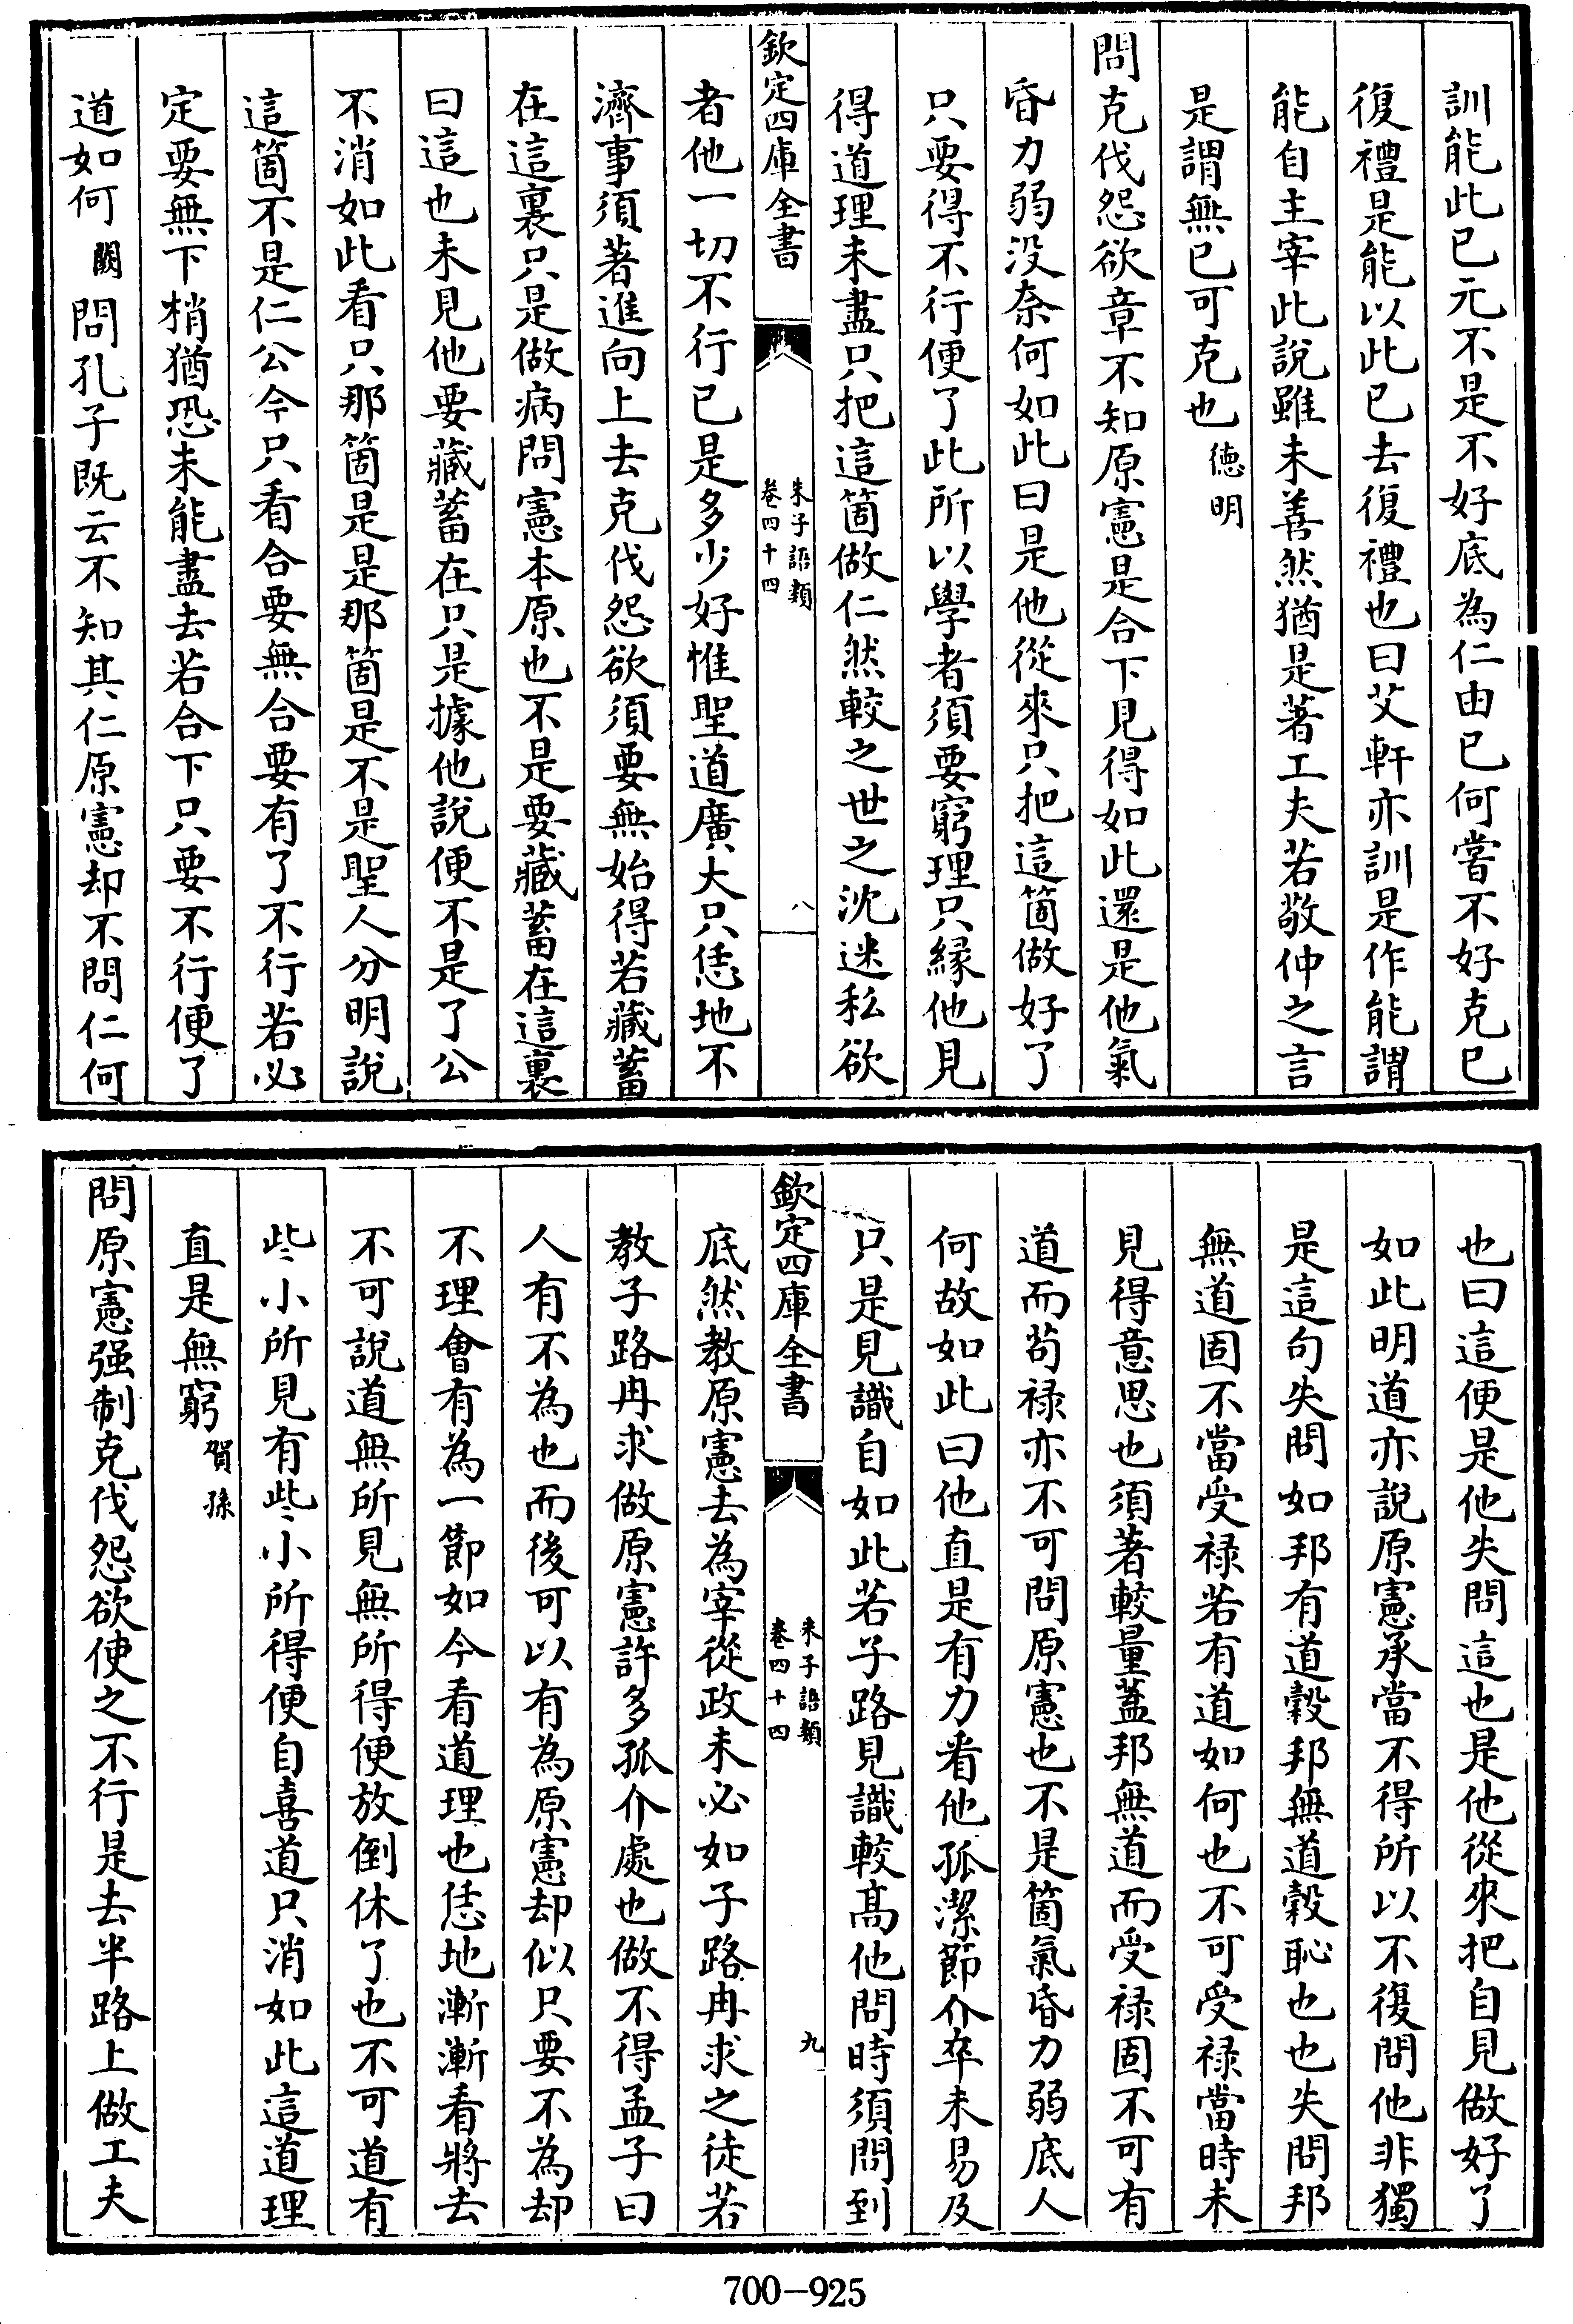 訓能此已元不是不好底為仁由已何嘗不好克已
復禮是能以此已去復禮也曰艾軒亦訓是作能謂
能自主宰此說雖未善然猶是著工夫若敬仲之言
是謂無已可克也德明
問克伐怨欲章不知原憲是合下見得如此還是他氣
昏力弱没奈何如此曰是他從來只把這箇做好了
只要得不行便了此所以學者須要窮理只緣他見
得道理未盡只把這箇做仁然較之世之沈迷私欲
欽定四庫全書
朱子語類
卷四十四
八
者他一切不行已是多少好惟聖道廣大只恁地不
濟事須著進向上去克伐怨欲須要無始得若藏蓄
在這裏只是做病問憲本原也不是要藏蓄在這裏
曰這也未見他要藏蓄在只是據他說便不是了公
不消如此看只那箇是是那箇是不是聖人分明說
這箇不是仁公今只看合要無合要有了不行若必
定要無下梢猶恐未能盡去若合下只要不行便了
道如何闕問孔子既云不知其仁原憲却不問仁何
也曰這便是他失問這也是他從來把自見做好了
如此明道亦說原憲承當不得所以不復問他非獨
是這句失問如邦有道穀邦無道穀恥也也失問邦
無道固不當受禄若有道如何也不可受禄當時未
見得意思也須著較量蓋邦無道而受禄固不可有
道而苟禄亦不可問原憲也不是箇氣昏力弱底人
何故如此曰他直是有力看他孤潔節介卒未易及
只是見識自如此若子路見識較高他問時須問到
欽定四庫全書
朱子語類
卷四十四
九
底然教原憲去為宰從政未必如子路冉求之徒若
教子路冉求做原憲許多孤介處也做不得孟子曰
人有不為也而後可以有為原憲却似只要不為却
不理會有為一節如今看道理也恁地漸漸看將去
不可說道無所見無所得便放倒休了也不可道有
些小所見有些小所得便自喜道只消如此這道理
直是無窮賀孫
問原憲强制克伐怨欲使之不行是去半路上做工夫
700-925